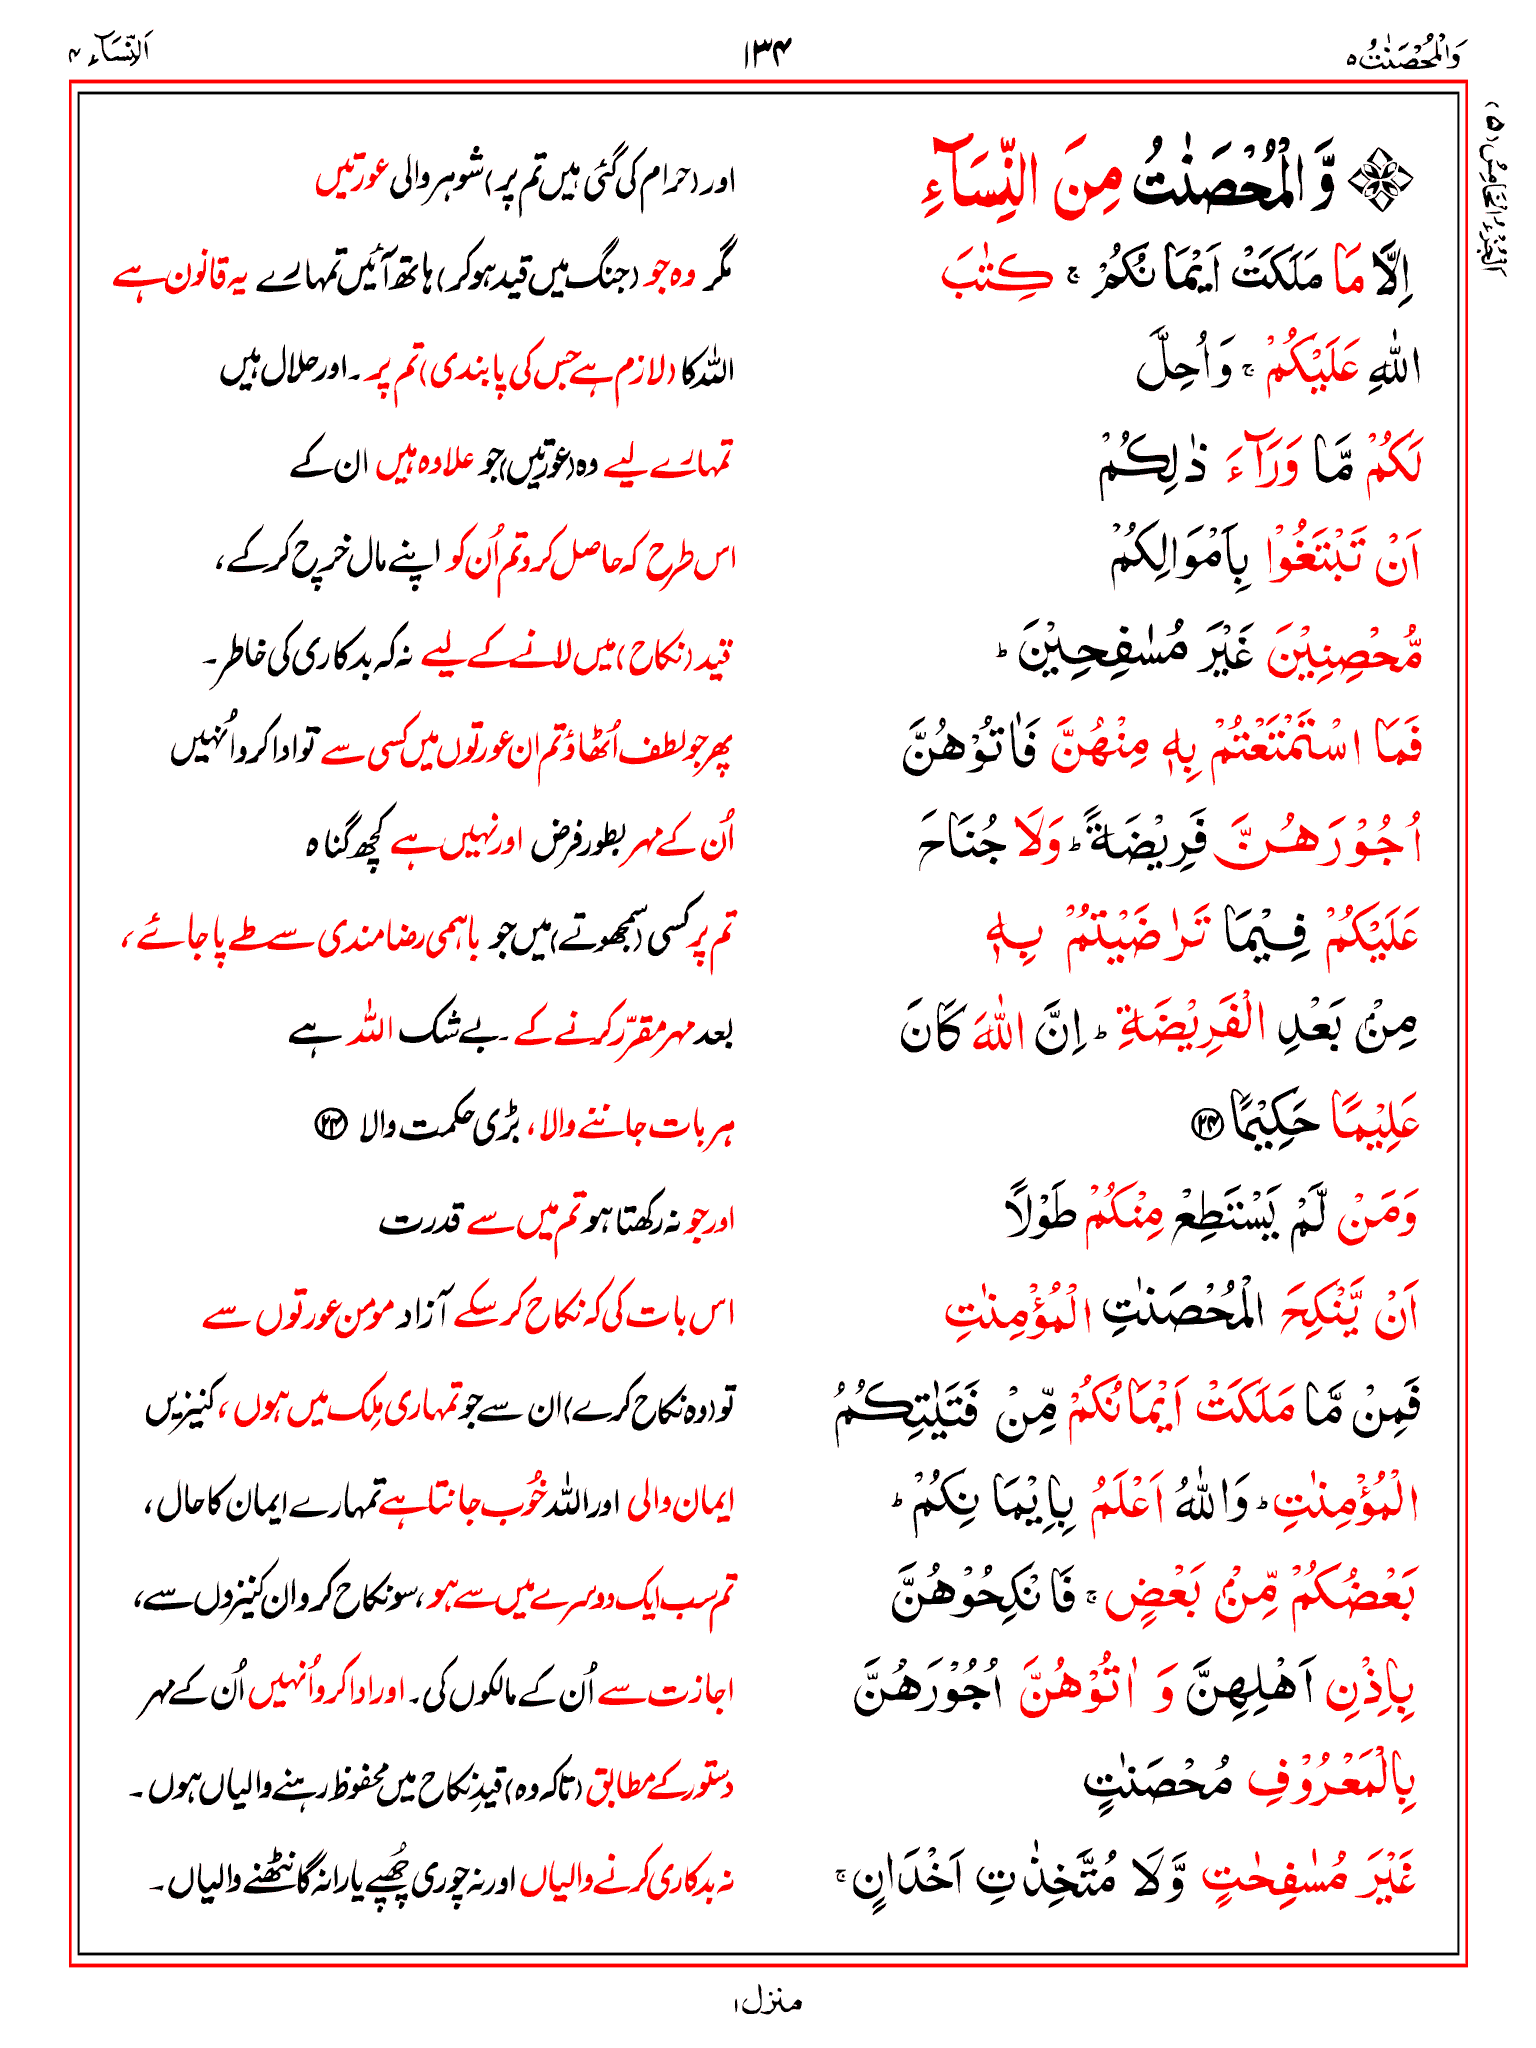 وَالْمُحْصَنٰتُ ۵
۱۳۴
اَلنِّسَآء ۴
اَلْجُزْءُ الْخَامِسُ (۵)
وَّالْمُحْصَنٰتُ مِنَ النِّسَآءِ
اور (حرام کی گئی ہیں تم پر) شوہر والی عورتیں
اِلَّا مَا مَلَكَتْ اَيْمَانُكُمْ ۚ كِتٰبَ
مگر وہ جو (جنگ میں قید ہوکر) ہاتھ آئیں تمہارے یہ قانون ہے
اللّٰهِ عَلَيْكُمْ ۚ وَاُحِلَّ
اللہ کا (لازم ہے جس کی پابندی) تم پر۔ اور حلال ہیں
لَكُمْ مَّا وَرَآءَ ذٰلِكُمْ
تمہارے لیے وہ (عورتیں) جو علاوہ ہیں ان کے
اَنْ تَبْتَغُوْا بِاَمْوَالِكُمْ
اس طرح کہ حاصل کرو تم اُن کو اپنے مال خرچ کرکے،
مُّحْصِنِيْنَ غَيْرَ مُسٰفِحِيْنَ ؕ
قید (نکاح) میں لانے کے لیے نہ کہ بدکاری کی خاطر۔
فَمَا اسْتَمْتَعْتُمْ بِهٖ مِنْهُنَّ فَاٰتُوْهُنَّ
پھر جو لطف اُٹھاؤ تم ان عورتوں میں کسی سے تو ادا کرو اُنہیں
اُجُوْرَهُنَّ فَرِيْضَةً ؕ وَلَا جُنَاحَ
اُن کے مہر بطور فرض اور نہیں ہے کچھ گناہ
عَلَيْكُمْ فِيْمَا تَرٰضَيْتُمْ بِهٖ
تم پر کسی (سمجھوتے) میں جو باہمی رضامندی سے طے پا جائے،
مِنْۢ بَعْدِ الْفَرِيْضَةِ ؕ اِنَّ اللّٰهَ كَانَ
بعد مہر مقرّر کرنے کے۔ بے شک اللہ ہے
عَلِيْمًا حَكِيْمًا ۲۴
ہر بات جاننے والا، بڑی حکمت والا ۲۴
وَمَنْ لَّمْ يَسْتَطِعْ مِنْكُمْ طَوْلًا
اور جو نہ رکھتا ہو تم میں سے قدرت
اَنْ يَّنْكِحَ الْمُحْصَنٰتِ الْمُؤْمِنٰتِ
اس بات کی کہ نکاح کرسکے آزاد مومن عورتوں سے
فَمِنْ مَّا مَلَكَتْ اَيْمَانُكُمْ مِّنْ فَتَيٰتِكُمُ
تو (وہ نکاح کرے) ان سے جو تمہاری مِلک میں ہوں، کنیزیں
الْمُؤْمِنٰتِ ؕ وَاللّٰهُ اَعْلَمُ بِاِيْمَانِكُمْ ؕ
ایمان والی اور اللہ خُوب جانتا ہے تمہارے ایمان کا حال،
بَعْضُكُمْ مِّنْۢ بَعْضٍ ۚ فَانْكِحُوْهُنَّ
تم سب ایک دوسرے میں سے ہو، سو نکاح کرو ان کنیزوں سے،
بِاِذْنِ اَهْلِهِنَّ وَ اٰتُوْهُنَّ اُجُوْرَهُنَّ
اجازت سے اُن کے مالکوں کی۔ اور ادا کرو اُنہیں اُن کے مہر
بِالْمَعْرُوْفِ مُحْصَنٰتٍ
دستور کے مطابق (تاکہ وہ) قیدِ نکاح میں محفوظ رہنے والیاں ہوں۔
غَيْرَ مُسٰفِحٰتٍ وَّلَا مُتَّخِذٰتِ اَخْدَانٍ ۚ
نہ بدکاری کرنے والیاں اور نہ چوری چُھپے یارانہ گانٹھنے والیاں۔
منزل ۱